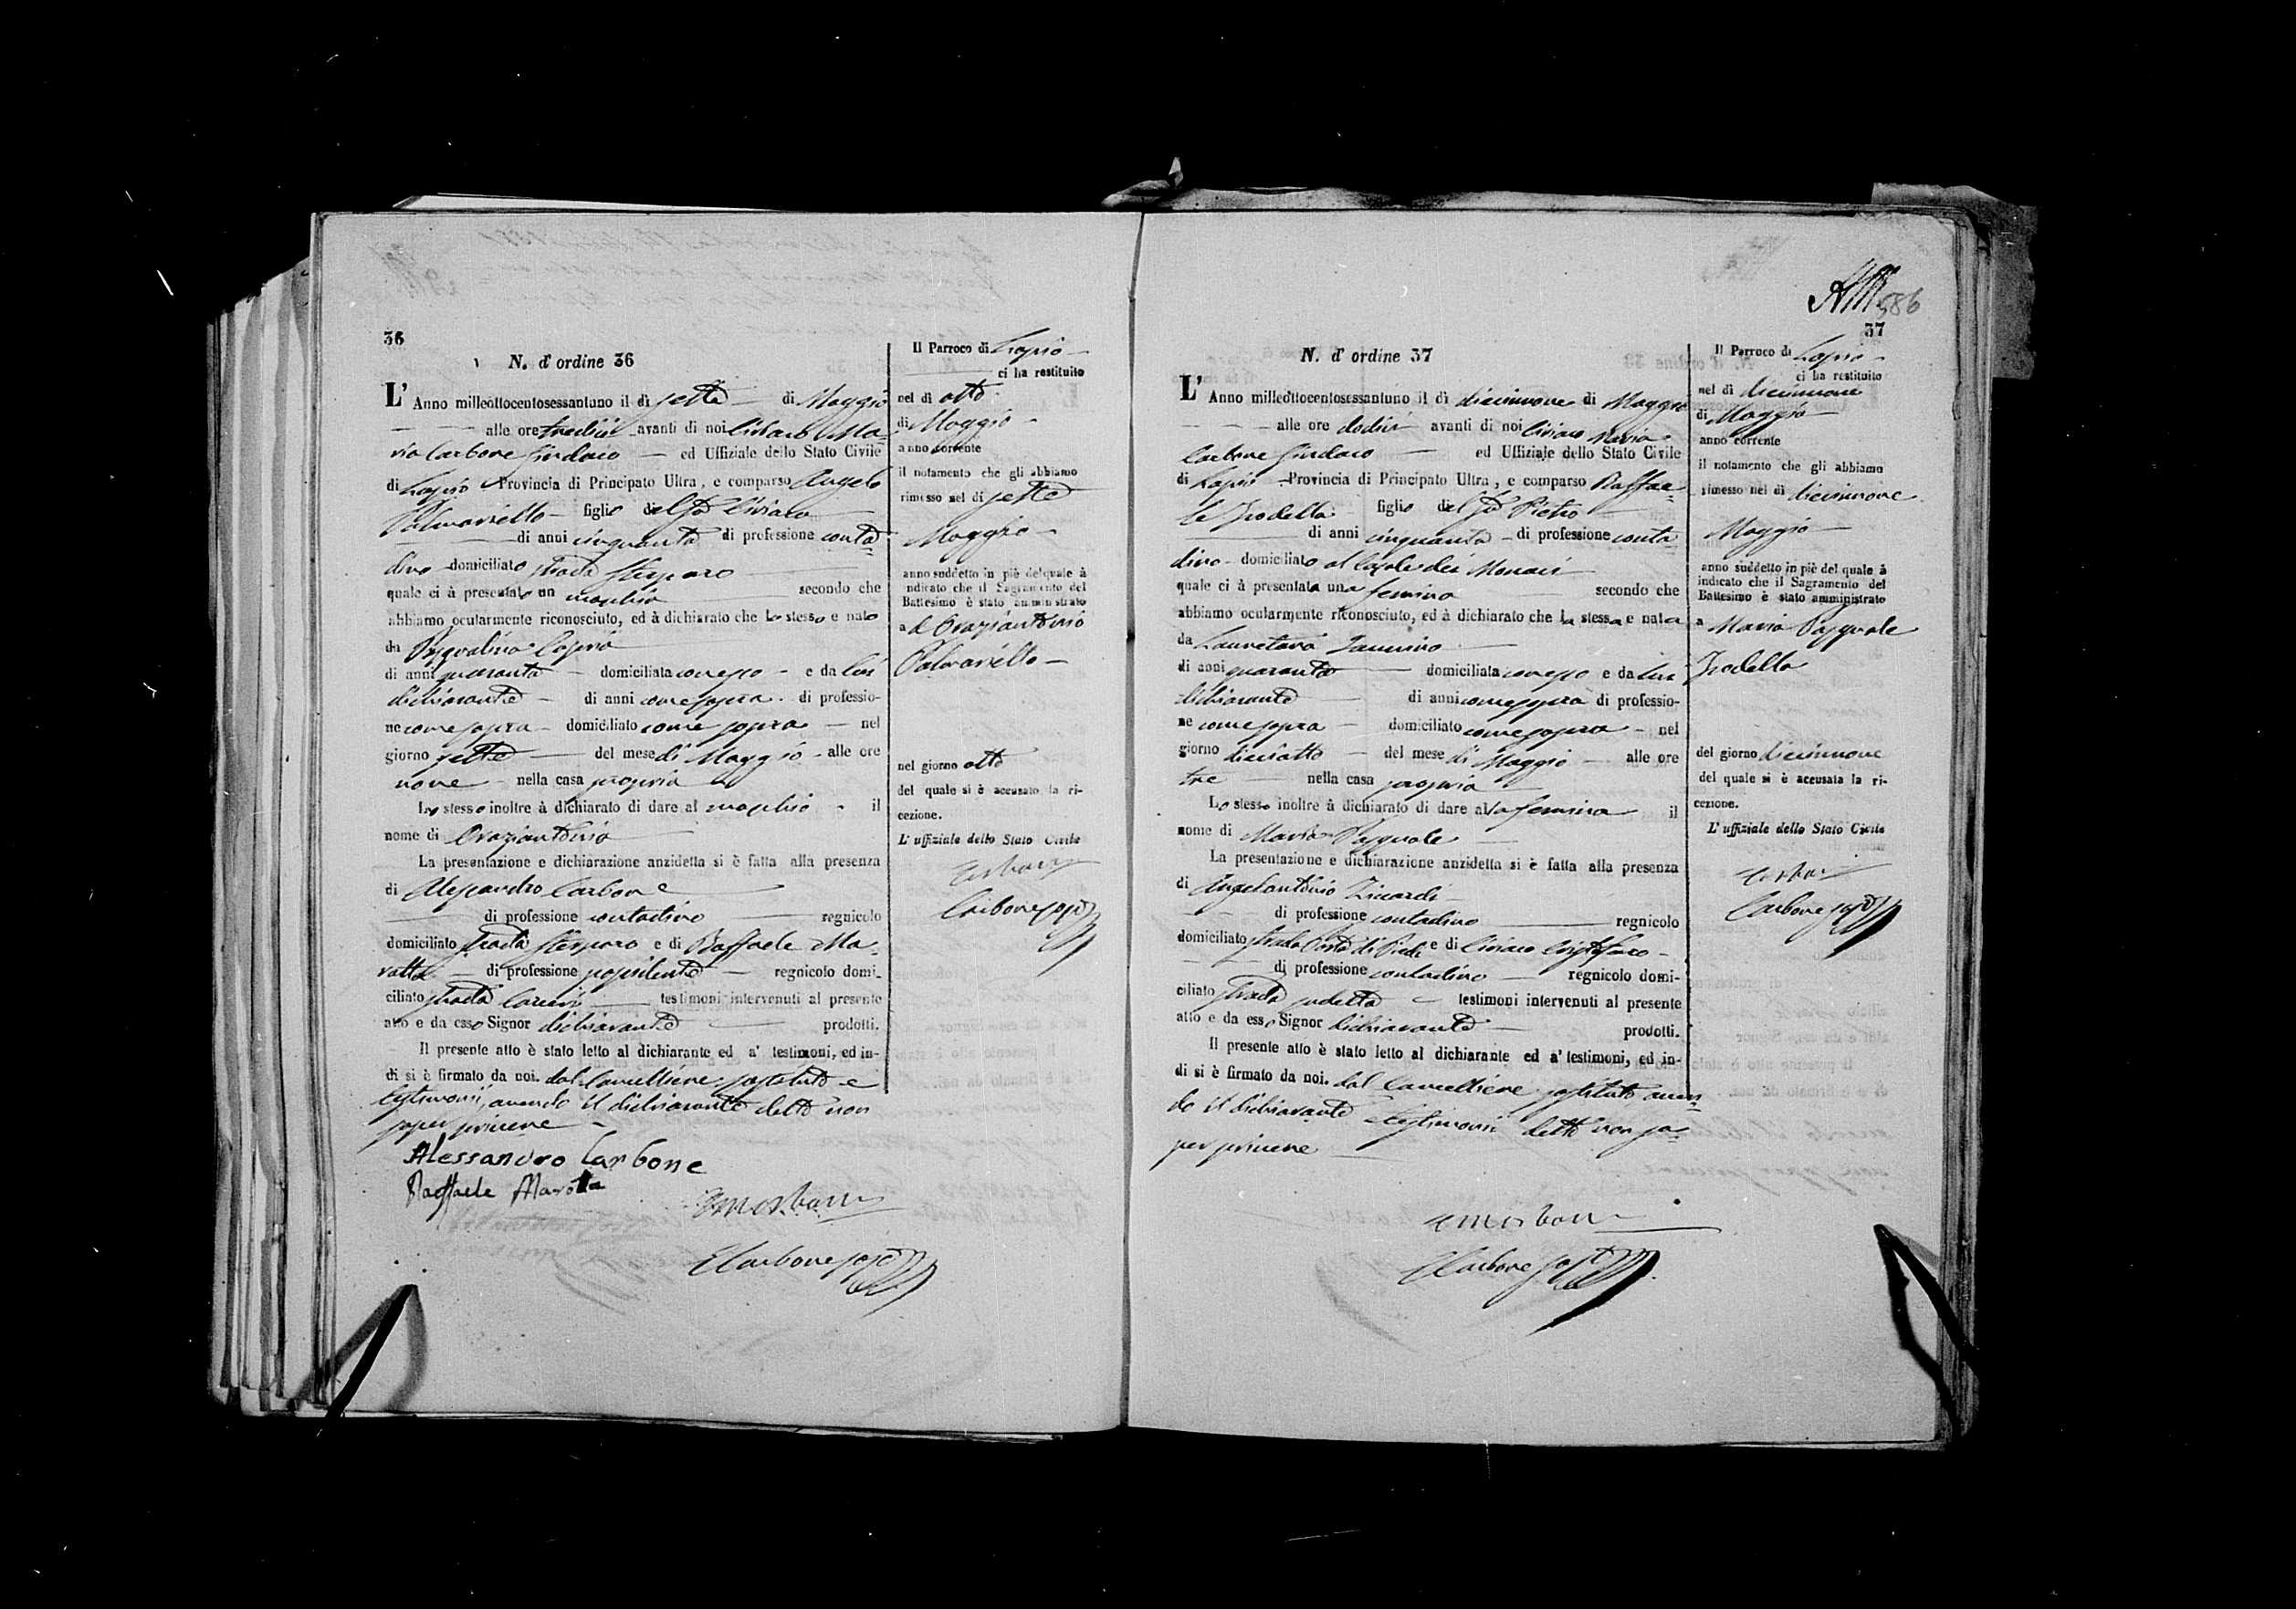 36
N. d' ordine 36
L' Anno milleottocentosessantuno il dì sette di Maggio
alle ore tredici avanti di noi Ciriaco Ma-
ria Carbone Sindaco ed Uffiziale dello Stato Civile
di Lapio Provincia di Principato Ultra, e comparso Angelo
figlio del fù Ciriaco
di anni cinquanta di professione conta-
dino domiciliato strada
quale ci à presentato un maschio secondo che
abbiamo ocularmente riconosciuto, ed à dichiarato che lo stesso e nato
da Pasqualina
di anni quaranta domiciliata con esso e da lui
dichiarante di anni come sopra di professio-
ne come sopra domiciliato come sopra nel
giorno sette del mese di Maggio alle ore
nove nella casa propria
Lo stesso inoltre à dichiarato di dare al maschio il
nome di Oraziantonio
La presentazione e dichiarazione anzidetta si è fatta alla presenza
di Alessandro Carbone
di professione contadino regnicolo
domiciliato strada e di Raffaele Ma-
rotta di professione possidente regnicolo domi-
ciliato strada testimoni intervenuti al presente
atto e da esso Signor dichiarante prodotti.
Il presente atto è stato letto al dichiarante ed a' testimoni, ed in-
di si è firmato da noi. dal Cancelliere sostituto e
testimonii, avendo il dichiarante detto non
saper scrivere
Alessandro Carbone
Raffaele Marotta
Carbone sost
Il Parroco di Lapio
ci ha restituito
nel dì otto
di Maggio
anno corrente
il notamento che gli abbiamo
rimesso nel dì sette
Maggio
anno suddetto in piè del quale à
indicato che il Sagramento del
Battesimo è stato amministrato
a Oraziantonio
nel giorno otto
del quale si è accusato la ri-
cezione.
L' uffiziale dello Stato Civile
Carbone sost
586
37
N. d' ordine 37
L' Anno milleottocentosessantuno il dì diciannove di Maggio
alle ore dodici avanti di noi Ciriaco Maria
Carbone Sindaco ed Uffiziale dello Stato Civile
di Lapio Provincia di Principato Ultra, e comparso Raffae-
le Trodella figlio del fù Pietro
di anni cinquanta di professione conta-
dino domiciliato al Casale dei Monaci
quale ci à presentata una femina secondo che
abbiamo ocularmente riconosciuto, ed à dichiarato che la stessa e nata
da Lauretana
di anni quaranta domiciliata con esso e da lui
dichiarante di anni come sopra di professio-
ne come sopra domiciliato come sopra nel
giorno diciotto del mese di Maggio alle ore
tre nella casa propria
Lo stesso inoltre à dichiarato di dare alla femina il
nome di Maria Pasquale
La presentazione e dichiarazione anzidetta si è fatta alla presenza
di Angelantonio Zicardi
di professione contadino regnicolo
domiciliato strada e di Ciriaco Cristofaro
di professione contadino regnicolo domi-
ciliato strada sudetta testimoni intervenuti al presente
atto e da esso Signor dichiarante prodotti.
Il presente atto è stato letto al dichiarante ed a' testimoni, ed in-
di si è firmato da noi. dal Cancelliere sostituto aven-
do il dichiarante e testimonii detto non sa-
per scrivere
Carbone sost
Il Parroco di Lapio
ci ha restituito
nel dì diciannove
di Maggio
anno corrente
il notamento che gli abbiamo
rimesso nel dì diciannove
Maggio
anno suddetto in piè del quale à
indicato che il Sagramento del
Battesimo è stato amministrato
a Maria Pasquale
Trodella
del giorno diciannove
del quale si è accusata la ri-
cezione.
L' uffiziale dello Stato Civile
Carbone sost